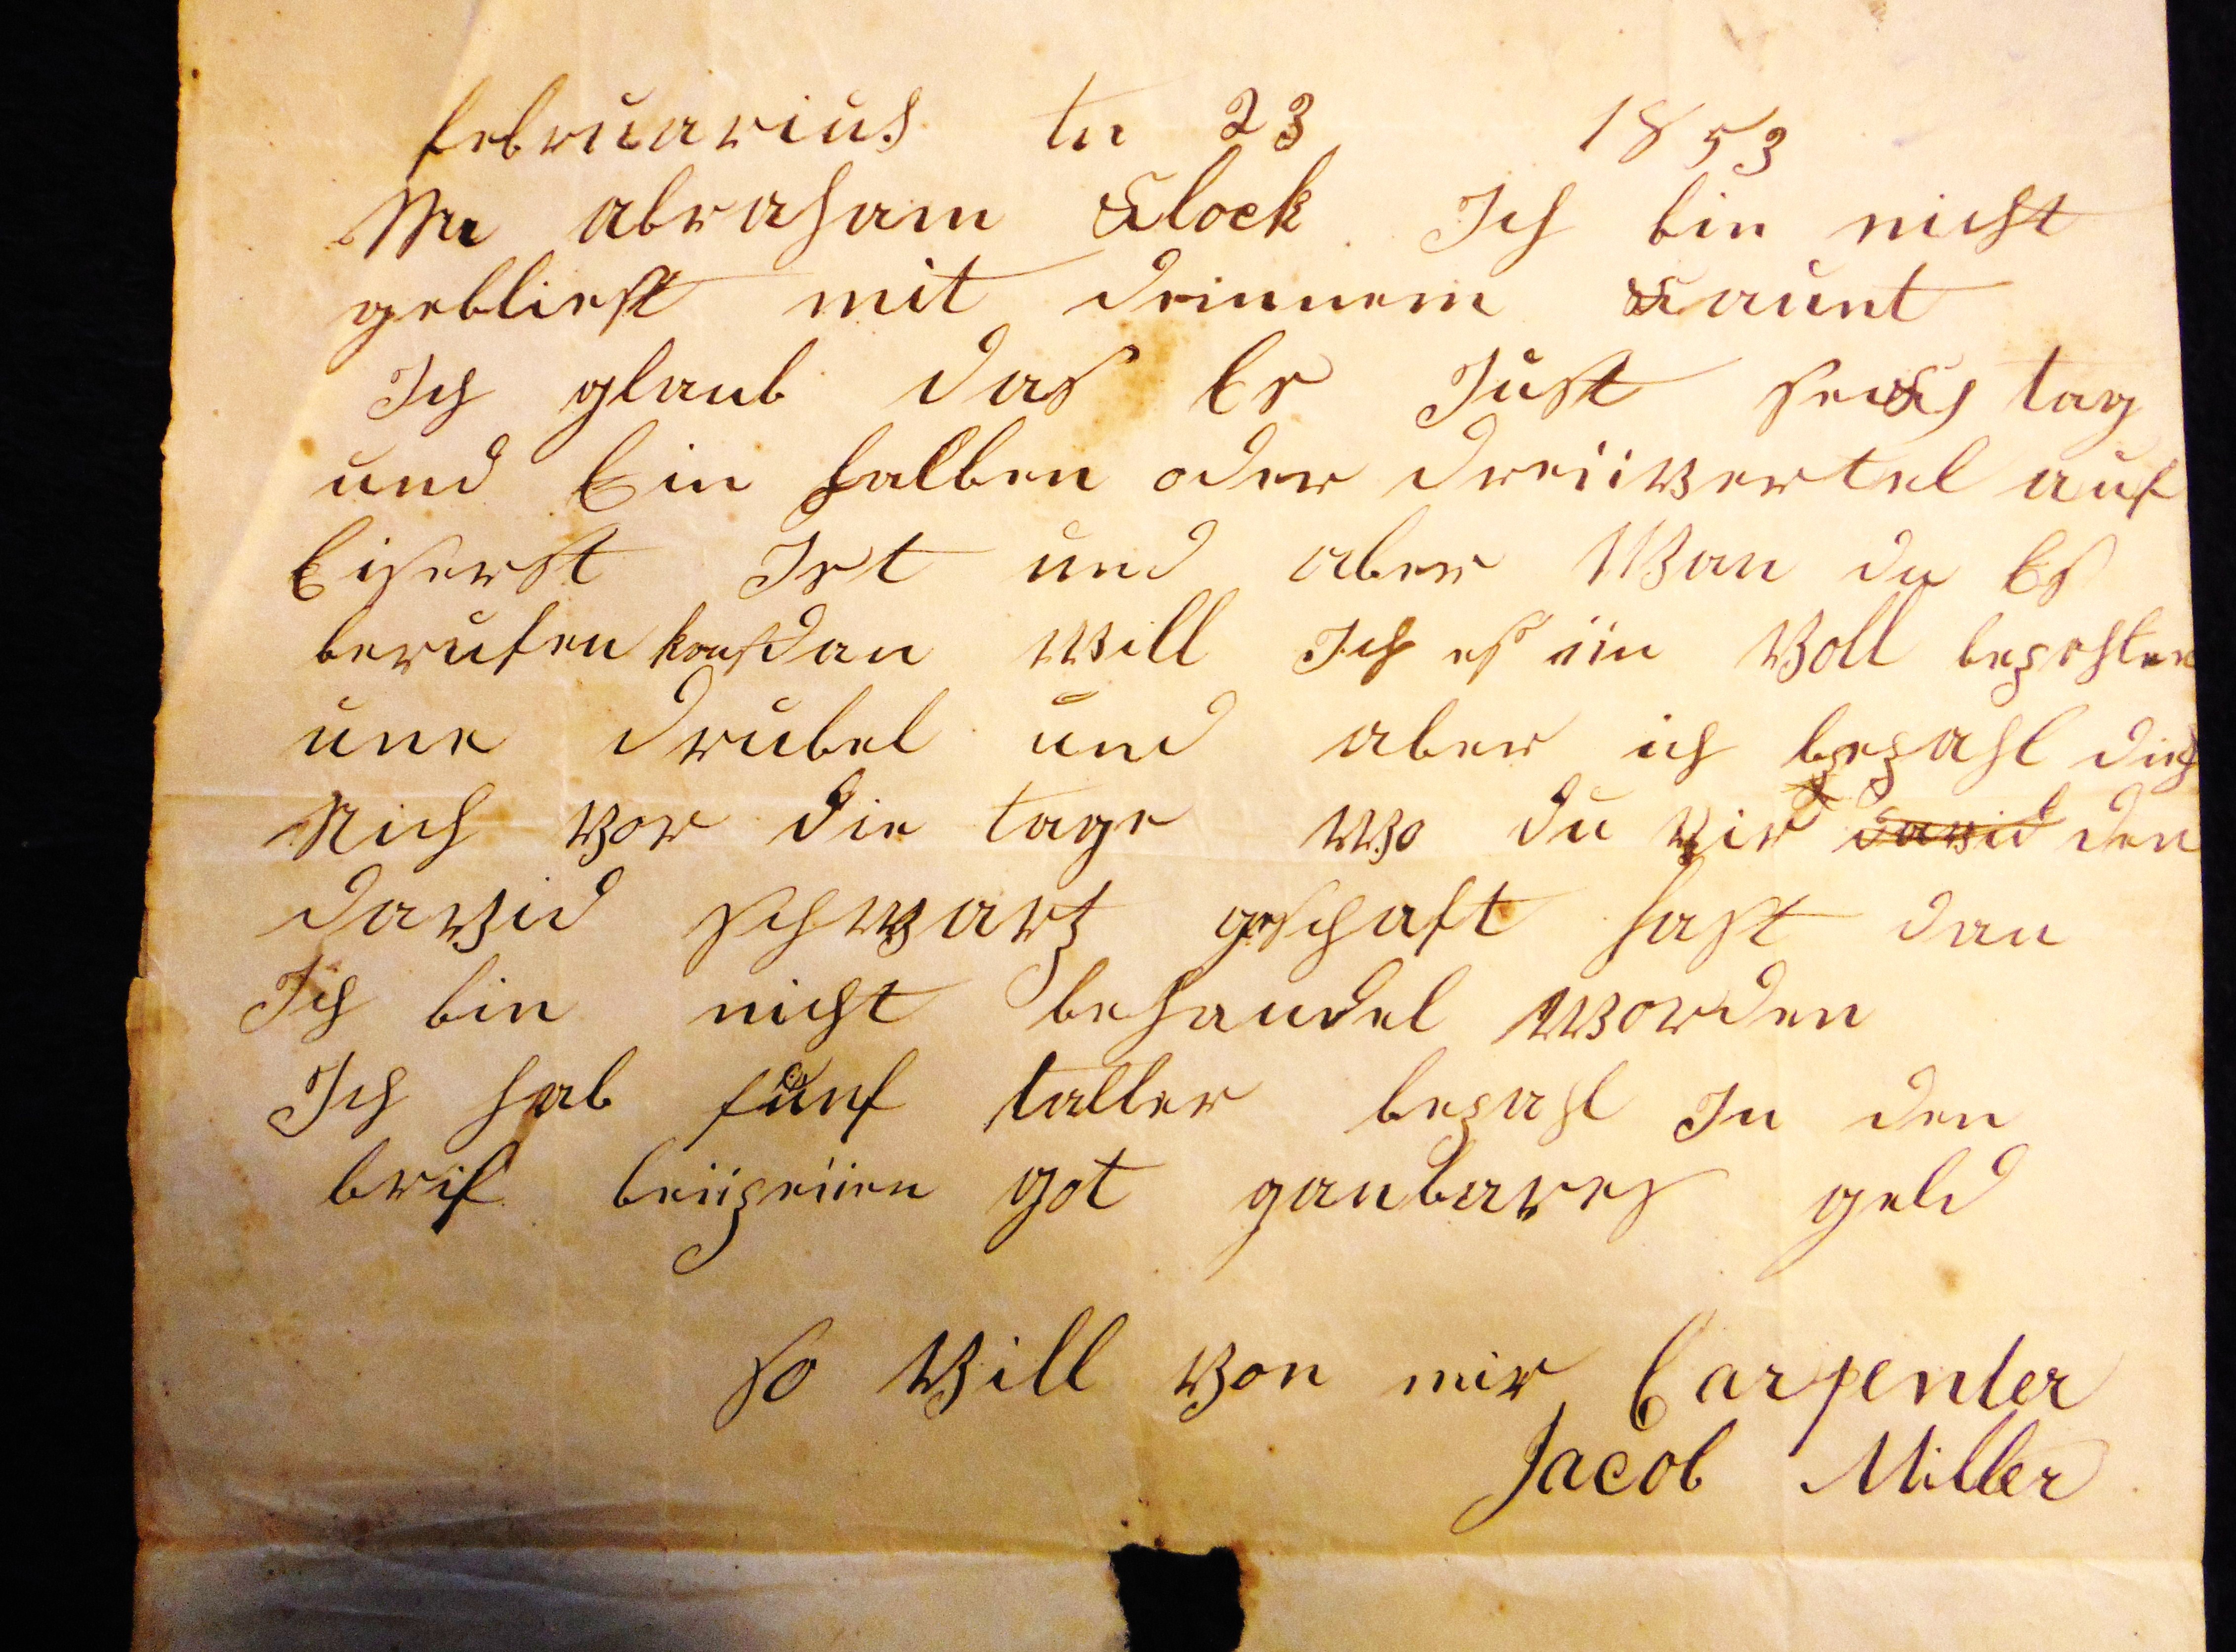 februarius tn 23 1853
Mr abraham Klock Ich bin nicht
gebliest mit deinnem Kaunt
Ich glaub das Es Just secks tag
und Ein halben oder dreiivertel auf
Eiserst Ist und aber Wan du Es
berufen kanst dan Will Ich es iin Voll bezahlen
une drubel und aber ich bezahl dich
Nich vor die tage wo du vir den
david schwartz geschaft hast dan
Ich bin nicht behandel worden
Ich hab fünf taller bezahl In den
brif beiizeiien got ganbares geld
so Vill von mir Carpenter
Jacob Miller